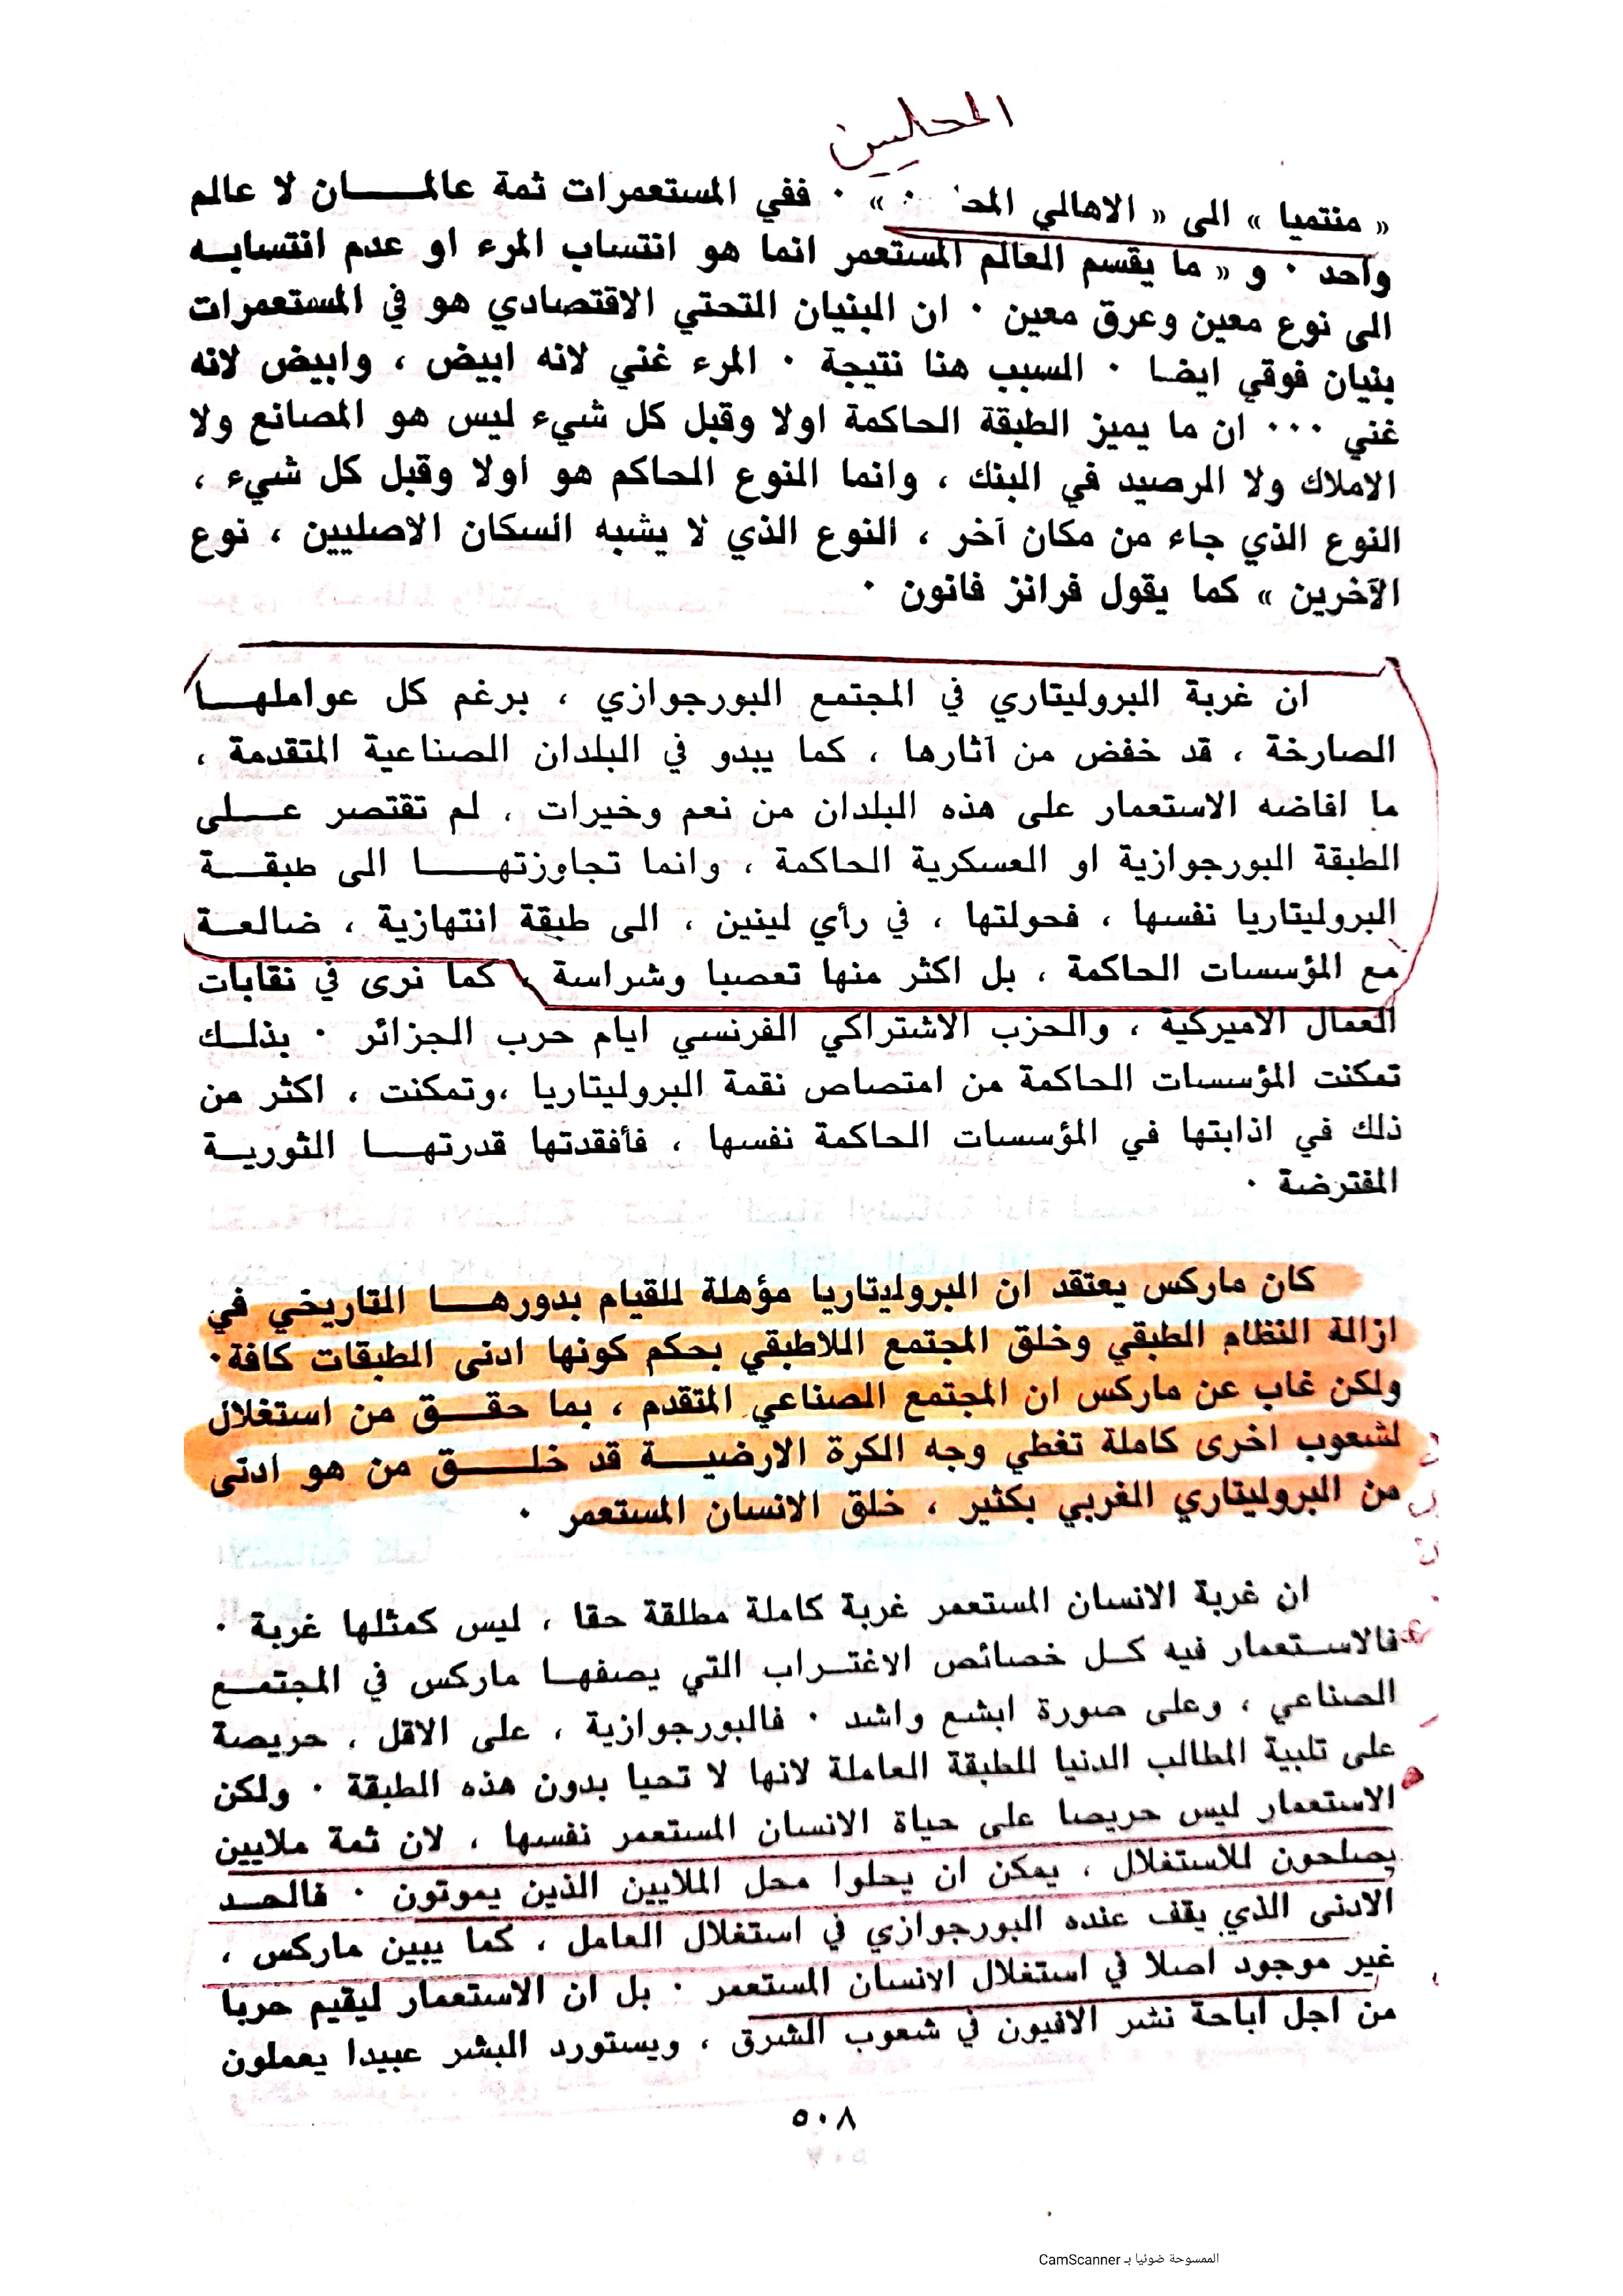 المحليين
« منتميا » الى « الاهالي المحـ » ٠ ففي المستعمرات ثمة عالمـــــان لا عالم
واحد ٠ و « ما يقسم العالم المستعمر انما هو انتساب المرء او عدم انتسابـــه
الى نوع معين وعرق معين ٠ ان البنيان التحتي الاقتصادي هو في المستعمرات
بنيان فوقي ايضا ٠ السبب هنا نتيجة ٠ المرء غني لانه ابيض ، وابيض لانه
غني ٠٠٠ ان ما يميز الطبقة الحاكمة اولا وقبل كل شيء ليس هو المصانع ولا
الاملاك ولا الرصيد في البنك ، وانما النوع الحاكم هو اولا وقبل كل شيء ،
النوع الذي جاء من مكان آخر ، النوع الذي لا يشبه السكان الاصليين ، نوع
الآخرين » كما يقول فرانز فانون ٠
ان غربة البروليتاري في المجتمع البورجوازي ، برغم كل عواملهـــا
الصارخة ، قد خفض من آثارها ، كما يبدو في البلدان الصناعية المتقدمة ،
ما افاضه الاستعمار على هذه البلدان من نعم وخيرات ، لم تقتصر عـــلى
الطبقة البورجوازية او العسكرية الحاكمة ، وانما تجاوزتهـــــا الى طبقـــة
البروليتاريا نفسها ، فحولتها ، في رأي لينين ، الى طبقة انتهازية ، ضالعـــة
مع المؤسسات الحاكمة ، بل اكثر منها تعصبا وشراسة ، كما نرى في نقابات
العمال الاميركية ، والحزب الاشتراكي الفرنسي ايام حرب الجزائر ٠ بذلــك
تمكنت المؤسسات الحاكمة من امتصاص نقمة البروليتاريا ،وتمكنت ، اكثر من
ذلك في اذابتها في المؤسسات الحاكمة نفسها ، فأفقدتها قدرتهـــا الثوريـــة
المفترضة ٠
كان ماركس يعتقد ان البروليتاريا مؤهلة للقيام بدورهـــا التاريخي في
ازالة النظام الطبقي وخلق المجتمع اللاطبقي بحكم كونها ادنى الطبقات كافة٠
ولكن غاب عن ماركس ان المجتمع الصناعي المتقدم ، بما حقـــق من استغلال
لشعوب اخرى كاملة تغطي وجه الكرة الارضيـــة قد خلـــــق من هو ادنى
من البروليتاري الغربي بكثير ، خلق الانسان المستعمر ٠
ان غربة الانسان المستعمر غربة كاملة مطلقة حقا ، ليس كمثلها غربة ٠
فالاستعمار فيه كـل خصائص الاغتـراب التي يصفهـا ماركس في المجتمـــع
الصناعي ، وعلى صورة ابشع واشد ٠ فالبورجوازية ، على الاقل ، حريصة
على تلبية المطالب الدنيا للطبقة العاملة لانها لا تحيا بدون هذه الطبقة ٠ ولكن
الاستعمار ليس حريصا على حياة الانسان المستعمر نفسها ، لان ثمة ملايين
يصلحون للاستغلال ، يمكن ان يحلوا محل الملايين الذين يموتون ٠ فالحــد
الادنى الذي يقف عنده البورجوازي في استغلال العامل ، كما يبين ماركس ،
غير موجود اصلا في استغلال الانسان المستعمر ٠ بل ان الاستعمار ليقيم حربا
من اجل اباحة نشر الافيون في شعوب الشرق ، ويستورد البشر عبيدا يعملون
٥٠٨
الممسوحة ضوئيا بـ CamScanner